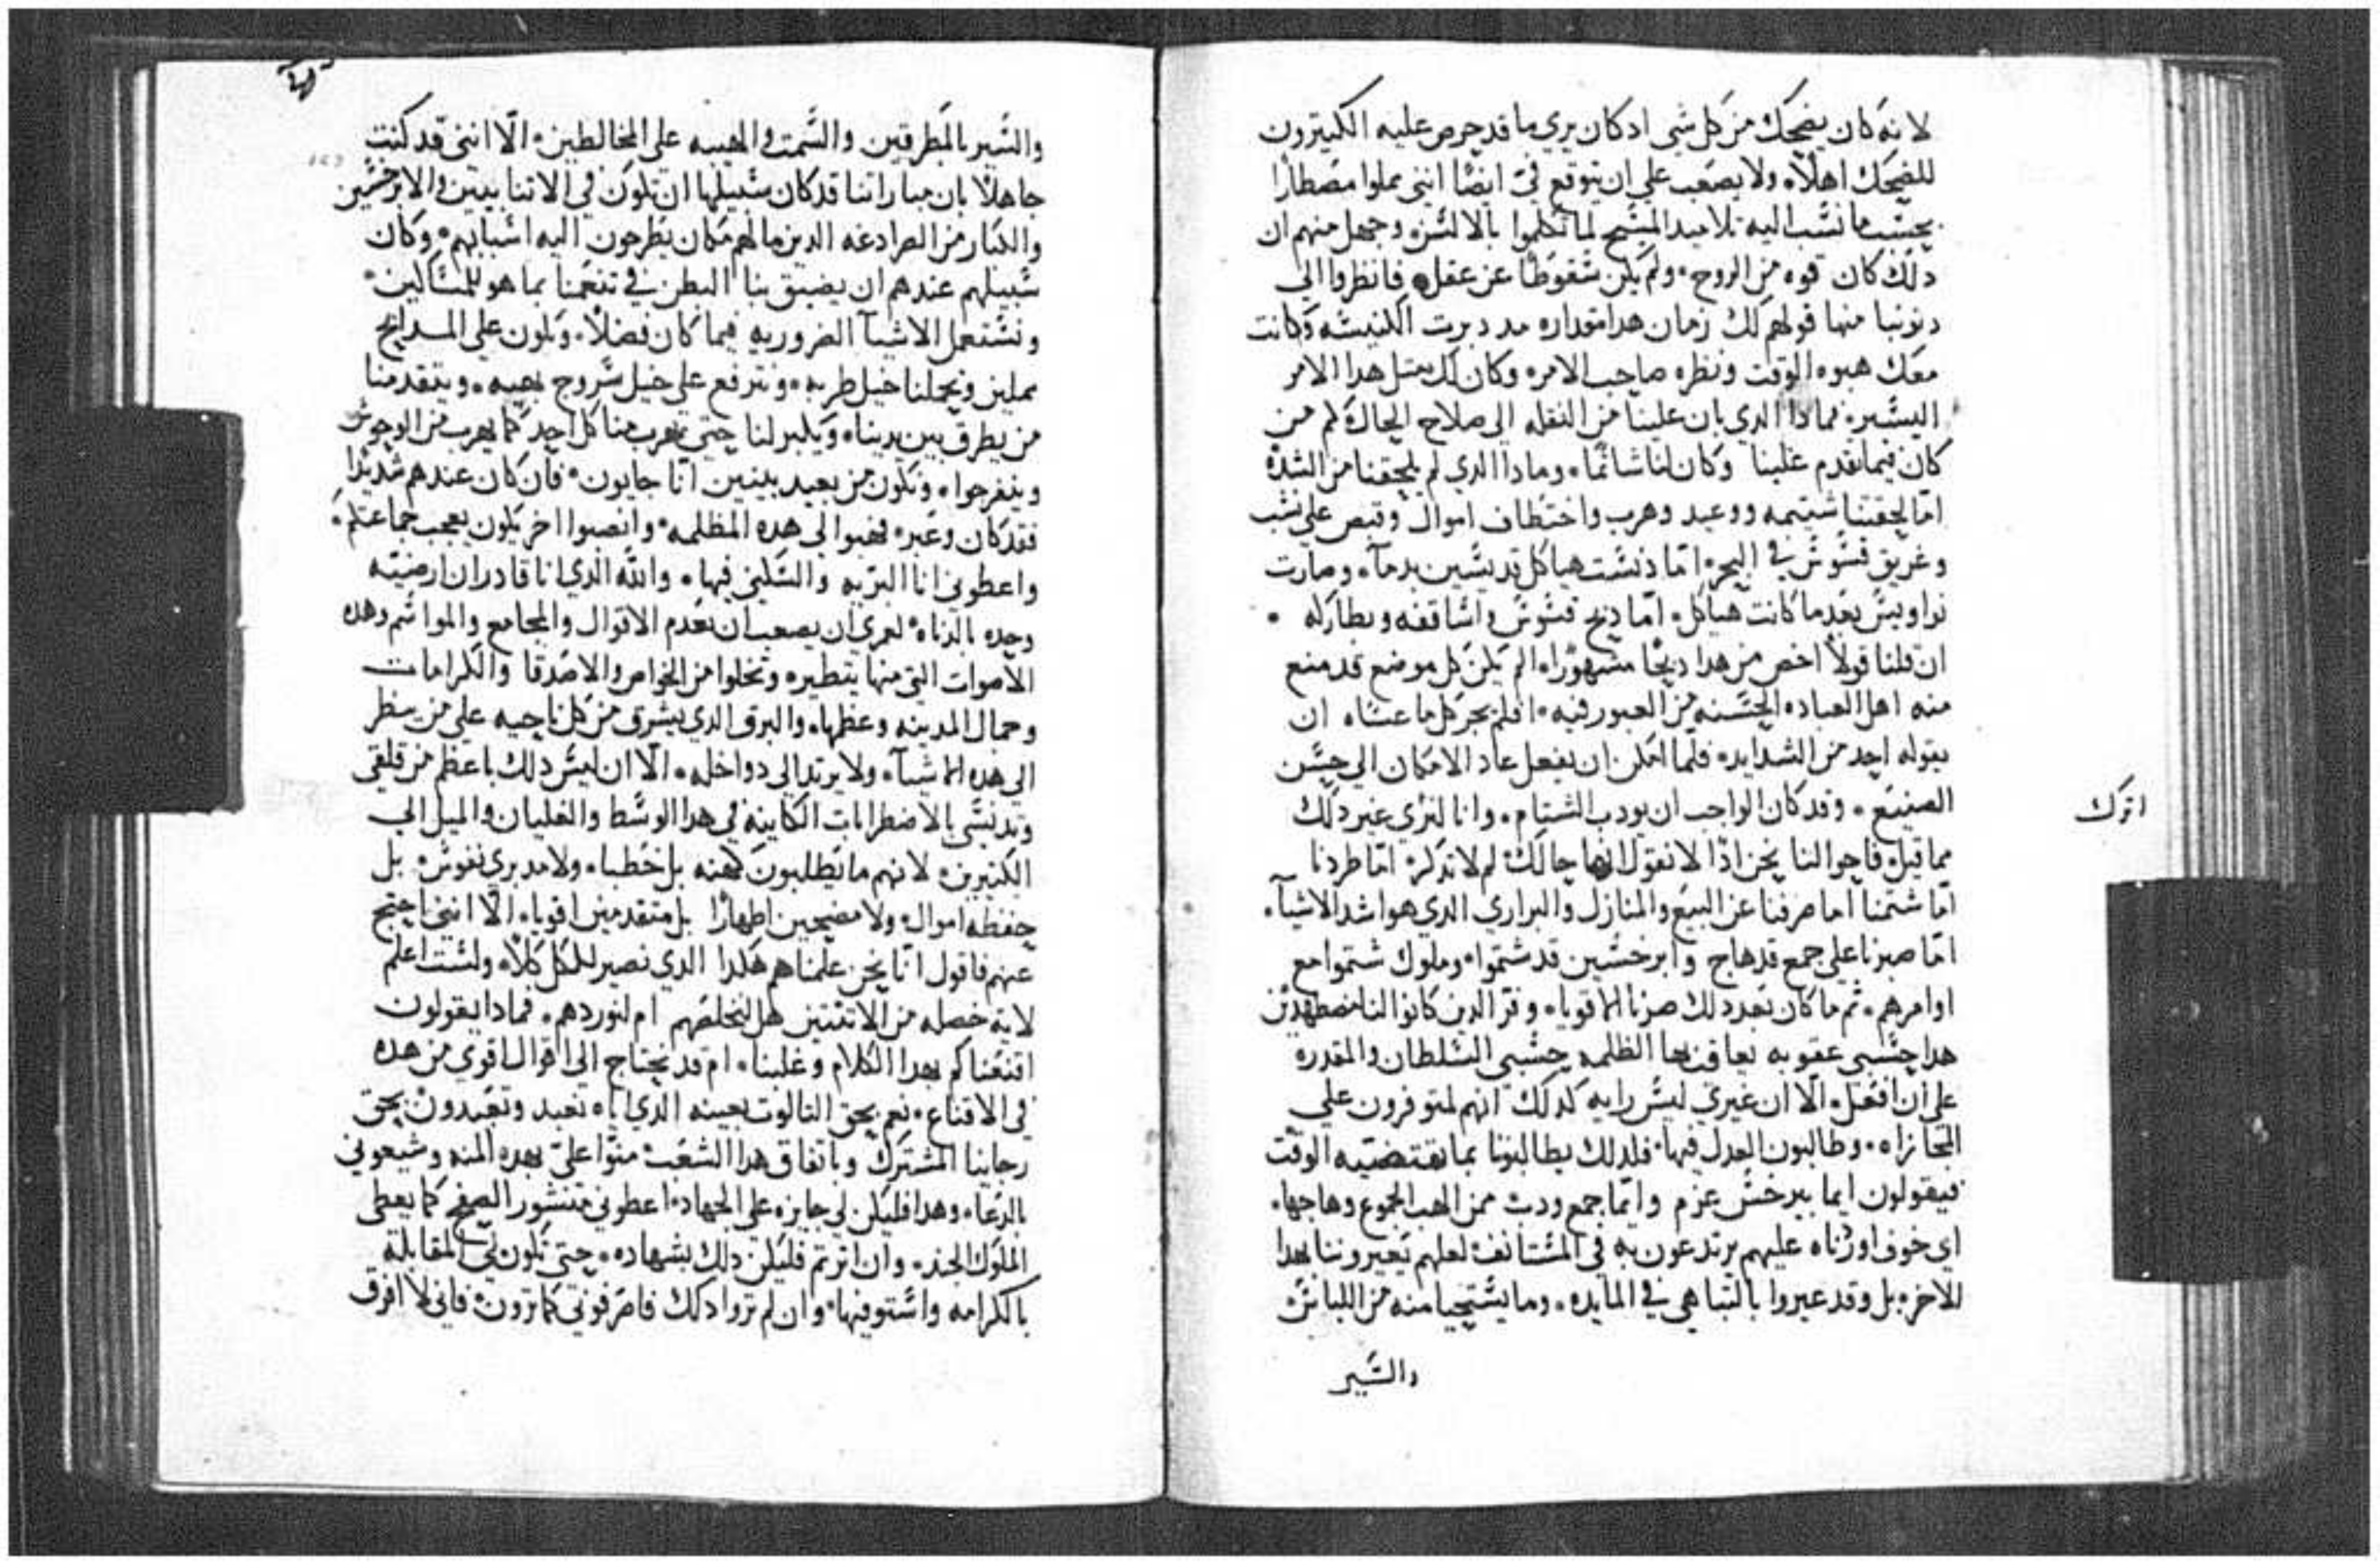 لانه كان يضحك من كل شي ادكان يري ما قد حرص عليه الكبيرون
للضحك اهلاً ولا يصعب علي ان يتوقع في ايضًا انني مملوا مصطارا
بحسب ما نسب اليه تلاميد المسيح لما تكلموا بالالسن وجهل منهم ان
دلك كان قوه من الروح ولم يكن سقوطًا عن عقل فانظروا الي
دنوبنا منها قولهم لك زمان هدا مقداره مد دبرت الكنيسه وكانت
معك هبوه الوقت ونظره صاحب الامر وكان لك مثل هدا الامر
اليسير فمادا الدي بان علينا من النقله الي صلاح الحال كم من
كان فيما تقدم علينا وكان لنا شاتمًا ومادا الدي لم يلحقنا من الشده
اما لحقتنا شتيمه ووعيد وهرب واختطاف اموال وقبص علي نشب
وغريق قسوس في البحر اما دنست هياكل قديسين بدمآ وصارت
نواويس بعد ما كانت هياكل اما دبح قسوس واساقفه وبطاركه
ان قلنا قولاً اخص من هدا دبحًا مشهورًا الم يكن كل موضع قد منع
منه اهل العباده الحسنه من العبور فيه افلم يجر كل ما عساه ان
يقوله احد من الشدايد فلما امكن ان نفعل عاد الامكان الي حسن
الصنيع وقد كان الواجب ان يودب الشتام وانا لنري غير دلك
اترك
مما قيل فاحوالنا نحن ادًا لا نقول انها حالك لم لا تدكر اما طردنا
اما شتمنا اما صرفنا عن البيع والمنازل والبراري الدي هو اشد الاشيآ
اما صبرنا علي جمع قد هاج وابرخسين قد شتموا وملوك شتموا مع
اوامرهم ثم ما كان بعد دلك صرنا اقويا وفر الدين كانوا لنا مضطهدين
هدا حسبي عقوبه نعاقب بها الظلمه حسبي السلطان والمقدره
علي ان افعل الّا ان غيري ليس رايه كدلك انهم لمتوفرون علي
المجازاه وطالبون العدل فيها فلدلك يطالبونا بما تقتضيه الوقت
فيقولون ايما ببرخس غرم وايما جمع ودب ممن الهب الجموع وهاجها
اي خوف اورثناه عليهم يرتدعون به في المستانف لعلهم يعيروننا بهدا
للاخره بل وقد عيروا بالتباهي في المايده وما يستحيا منه من اللباس
والسير
والسير بالمطرقين والسمت والهيبه علي المخالطين الّا انني قد كنت
جاهلاً بان مباراتنا قد كان سبيلها ان تكون في الاتنا بيبين والابرخسين
والكبار من الصرادغه الدين ما لهم مكان يطرحون اليه اسبابهم وكان
سبيلهم عندهم ان يضيق بنا البطن في تنعمنا بما هو للمساكين
ونستعمل الاشيآ الضروريه فيما كان فضلاً ونكون علي المدابح
مملين وتحملنا خيل طربه ونترفع علي خيل سروج نجيبه ويتقدمنا
من يطرق بين يدينا ويكبر لنا حتي يهرب منا كل احد كما يهرب من الوحوش
وينفرجوا ونكون من بعيد بينين انا جايون فان كان عندهم شديدًا
فقد كان وعبر فهبوا لي هده المظلمه وانصبوا اخر يكون يعجب جماعتكم
واعطوني انا البريه والسكني فيها والله الدي انا قادر ان ارضيه
وحده بالدناه لعمري ان يصعب ان نعدم الاقوال والمجامع والمواسم وهده
الاصوات التي منها يتطير ونخلوا من الخواص والاصدقا والكرامات
وجمال المدينه وعظمها والبرق الدي يشرق من كل ناحيه علي من ينظر
الي هده الاشيآ ولا يرتد الي دواخله الّا ان ليس دلك باعظم من قلقي
وتدنسي بالاضطرابات الكاينه في هدا الوسط والغليان والميل الي
الكثيرين لانهم ما يطلبون كهنه بل خطبا ولا مدبري نفوس بل
حفظه اموال ولا مضحين اطهارًا بل متقدمين اقويا الّا انني احتج
عنهم فاقول انا نحن علمناهم هكدا الدي نصير للكل كلاً ولست اعلم
لاية خصله من الاتنتين هل لنخلصهم ام لنوردهم فمادا يقولون
اقنعناكم بهدا الكلام وغلبنا ام قد نحتاج الي اقوال اقوي من هده
في الاقناع نعم بحق التالوت بعينه الدي اياه نعبد وتعبدون بحق
رجاينا المشترك وباتفاق هدا الشعب منوا علي بهده المنه وشيعوني
بالدعا وهدا فليكن لي جايزه علي الجهاد اعطوني منشور الصفح كما يعطي
الملوك الجند وان اثرتم فليكن دلك بشهاده حتي تكون لي المقابلة
بالكرامه واستوفيها وان لم تروا دلك فاصرفوني كما ترون فاني لا افرق